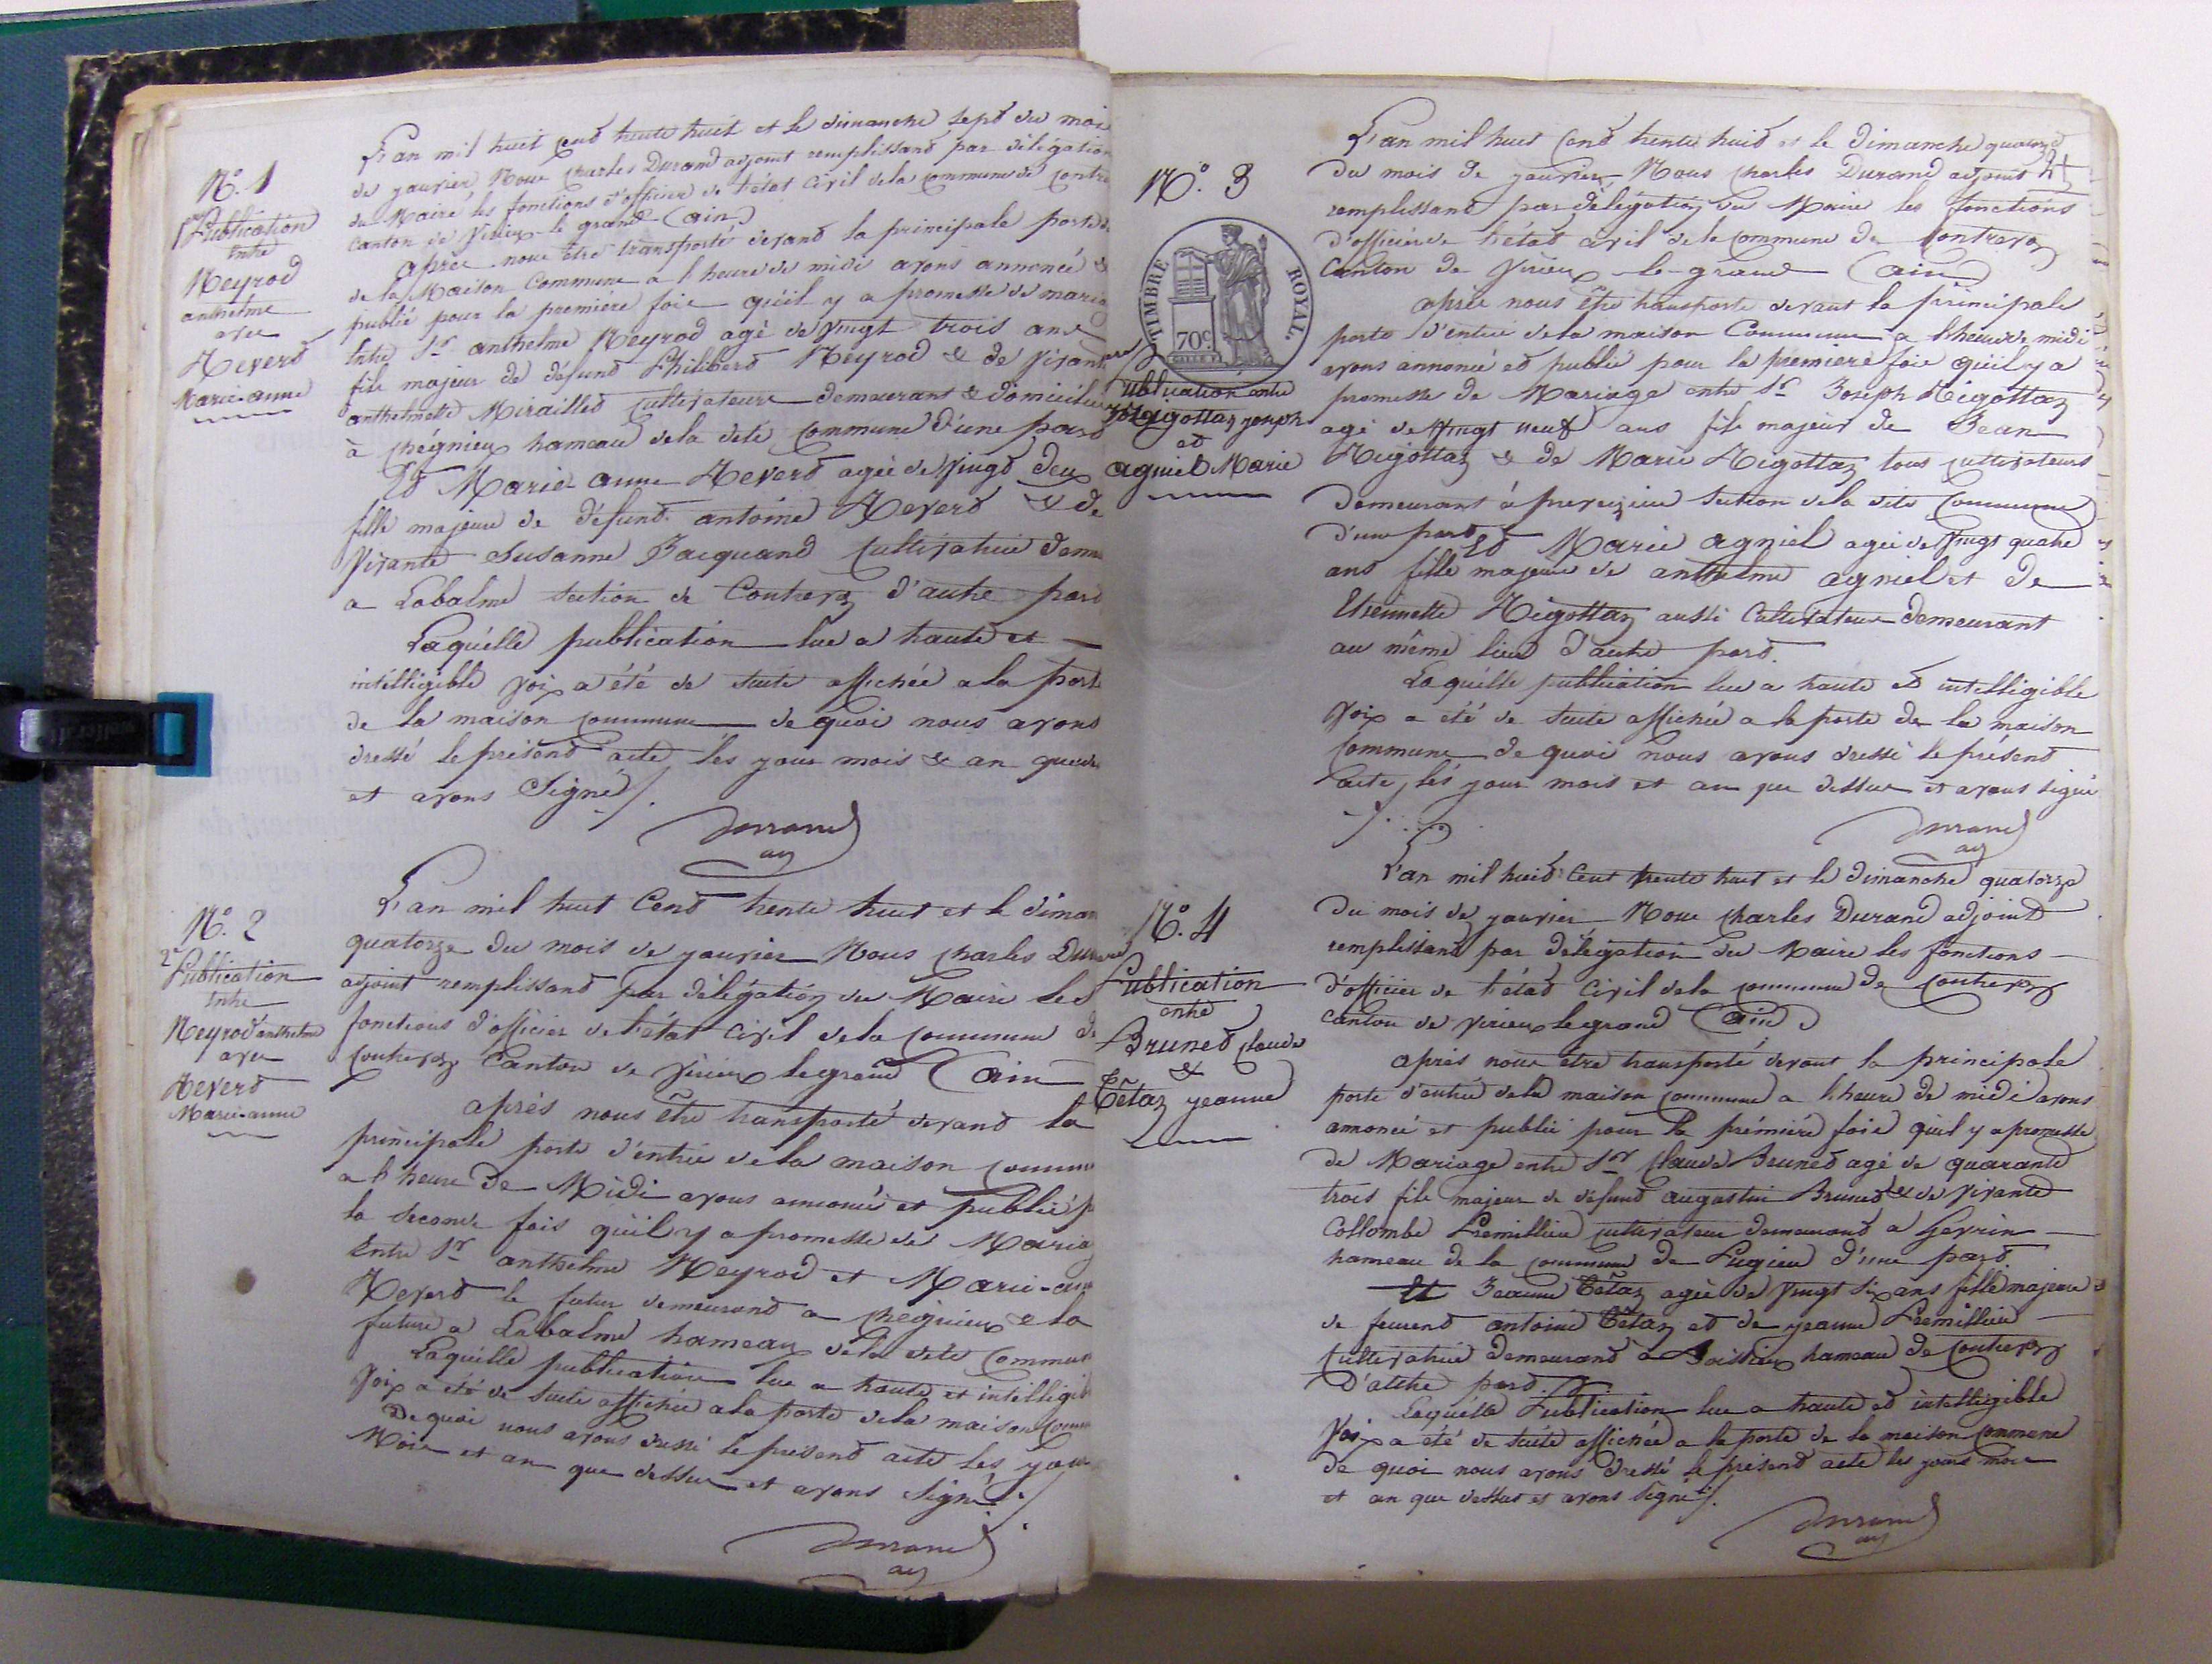 N.° 1
1ere Publication
entre
Meyrod
anthelme
avec
Heverd
Marie-anne
L'an mil huit cend trente huit et le dimanche sept du mois
de janvier Nous Charles Durand adjoint remplissand par délégation
du Maire les fonctions d'officier de l'état Civil de la Commune de Contre
Canton de Virieu-le-grand (ain)
après nous être transporté devand la principale porte
de la Maison Commune a l'heure de midi avons annoncé &
publié pour la première fois qu'il y a promesse de maria
Entre Sr. anthelme Meyrod agé de vingt trois ans
fils majeur de défund Philiberd Meyrod & de vivante
anthelmette Mirailled cultivateurs demeurant & domicilié
à Chégnieu hameau de la dite Commune d'une pard
Ed Marie anne Heverd agée de vingd deux
fille majeure de défund antoine Heverd & de
vivante Susanne Jacquand Cultivatrice deme
a Labalme section de Contrevoz d'autre pard
Laquelle publication lue a haute et
intélligible voix a été de suite affichée a la port
de la maison commune de quoi nous avons
dressé le présend acte les jour mois & an que
et avons Signé /.
Durand
adj
N.° 2
2e Publication
Entre
Meyrod anthelme
avec
Heverd
Marie-anne
L'an mil huit Cend trente huit et le diman
quatorze du mois de janvier Nous Charles Durand
adjoint remplissand par délégation du Maire les
fonctions d'officier de l'état Civil de la Commune de
Contrevoz Canton de Virieu le grand (ain
après nous être transporté devand la
principale porte d'entrée de la maison commu
a l'heure de Midi avons annoncé et publié p
la seconde fois qu'il y a promesse de Maria
Entre Sr anthelme Meyrod et Marie-an
Heverd le futur demeurand a Chegnieu & la
future a Labalme hameau de la dite Commun
Laquelle publication lue a haute et intelligib
Voix a été de suite affichée a la porte de la maison Comm
De quoi nous avons dressé le présend acte les jou
Mois et an que dessus et avons Signé /
Durand
adj
N.° 3
TIMBRE ROYAL.
70c.
Publication entre
Rigottaz joseph
ed
agniel Marie
L'an mil huit Cend trente huid et le Dimanche quatorze
Du mois de janvier Nous Charles Durand adjoint
remplissand par délégation du Maire les fonctions
d'officier de l'état Civil de la Commune de Contrevoz
Canton de Virieu-le-grand (ain)
après nous être transporté devant la principale
porte d'entrée de la maison Commune a l'heure de midi
avons annoncé ed publié pour la premiere fois qu'il y a
promesse de Mariage entre Sr Joseph Rigottaz
agé de vingt neuf ans fils majeur de Jean
Rigottaz & de Marie Rigottaz tous cultivateurs
Demeurant à preveyzieu section de la dite Commune
d'une pard Ed Marie agniel agée de vingt quatre
ans fille majeure de anthelme agniel et de
Etiennette Rigottaz aussi Cultivateurs Demeurant
au même lieu D'autre pard.
Laquelle publication lue a haute ed intelligible
Voix a été de suite affichée a la porte de la maison
Commune de quoi nous avons dressé le présend
acte, les jour mois et an que dessus et avons signé
Durand
adj
N.° 4
Publication
entre
Bruned Claude
&
Tétaz jeanne
L'an mil huid Cent trente huit et le Dimanche quatorze
Du mois de janvier Nous Charles Durand adjoint
remplissand par délégation du Maire les fonctions
d'officier de l'étad Civil de la commune de Contrevoz
Canton de Virieu le grand (ain)
après nous etre transporté devant la principale
porte d'entrée de la maison commune a l'heure de midi avons
annoncé et publié pour la prémière fois qu'il y a promesse
de Mariage entre Sr Claude Bruned agé de quarante
trois fils majeur de défund augustin Bruned & de vivante
Collombe Premillieu cultivateur demeurand a Gevrin
hameau de la commune de Pugieu d'une pard.
Et Jeanne Tétaz agée de vingt Six ans fille majeure
de feu antoine Tétaz ed de jeanne Premillieu
Cultivatrice Demeurand a Boissieu hameau de Contrevoz
D'autre pard
Laquelle Publication lue a haute ed intelligible
Voix a été de suite affichée a la porte de la maison Commune
de quoi nous avons dressé le présend acte les jours mois
et an que dessus et avons Signé /.
Durand
adj